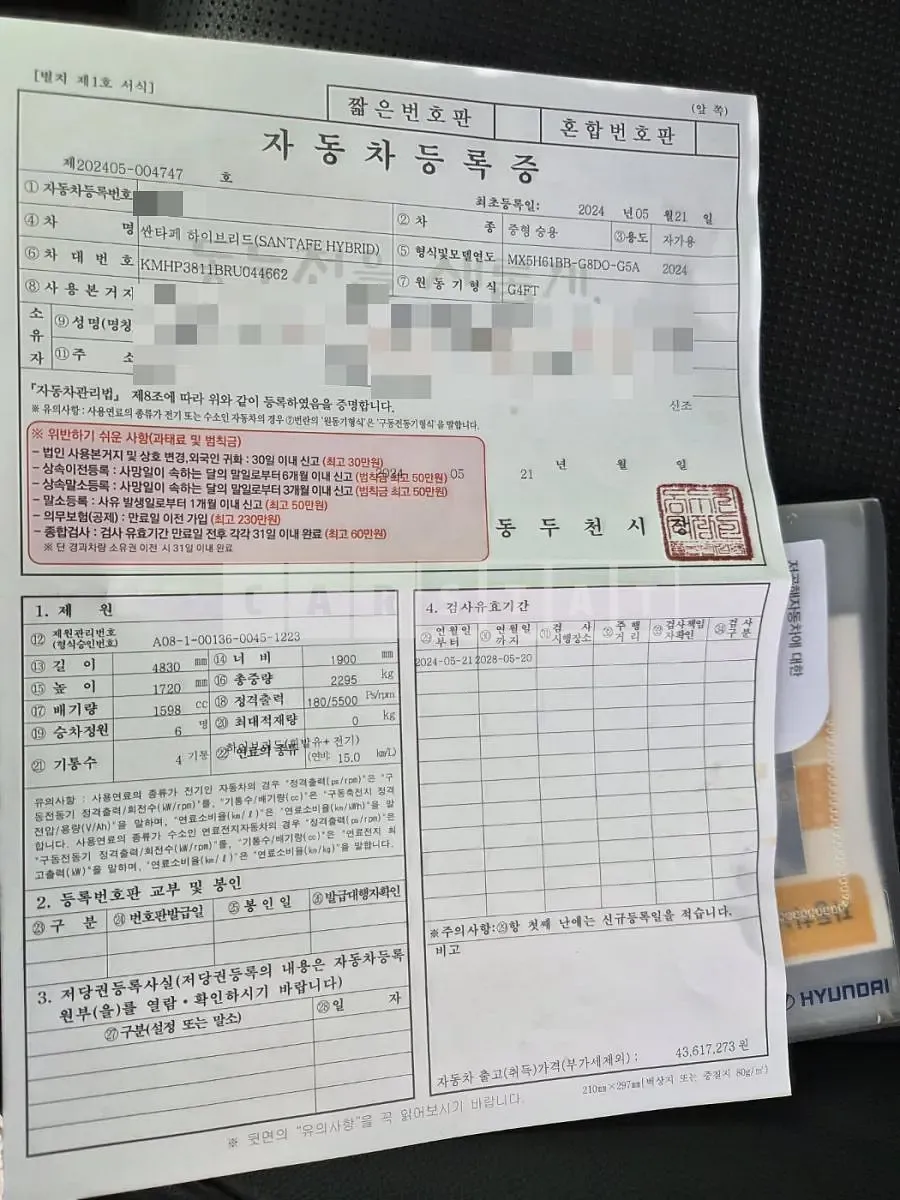 [별지 제1호 서식]
(앞 쪽)
짧은번호판 혼합번호판
자동차등록증
제202405-004747 호
최초등록일: 2024 년05 월21 일
① 자동차등록번호 ② 차 종 중형 승용 ③용도 자가용
④ 차 명 싼타페 하이브리드(SANTAFE HYBRID) ⑤ 형식및모델연도 MX5H61BB-G8DO-G5A 2024
⑥ 차 대 번 호 KMHP3811BRU044662 ⑦ 원 동 기 형 식 G4FT
⑧ 사 용 본 거 지
소유자 ⑨ 성명(명칭
⑪ 주 소
『자동차관리법』 제8조에 따라 위와 같이 등록하였음을 증명합니다.
신조
※ 유의사항 : 사용연료의 종류가 전기 또는 수소인 자동차의 경우 ⑦번란의 '원동기형식'은 '구동전동기형식'을 말합니다.
※ 위반하기 쉬운 사항(과태료 및 범칙금)
- 법인 사용본거지 및 상호 변경,외국인 귀화 : 30일 이내 신고 (최고 30만원)
- 상속이전등록 : 사망일이 속하는 달의 말일로부터 6개월 이내 신고 (범칙금 최고 50만원)
- 상속말소등록 : 사망일이 속하는 달의 말일로부터 3개월 이내 신고 (범칙금 최고 50만원)
- 말소등록 : 사유 발생일로부터 1개월 이내 신고 (최고 50만원)
- 의무보험(공제) : 만료일 이전 가입 (최고 230만원)
- 종합검사 : 검사 유효기간 만료일 전후 각각 31일 이내 완료 (최고 60만원)
※ 단 경과차량 소유권 이전 시 31일 이내 완료
2024 05 21 년 월 일
동 두 천 시 장
1. 제 원
⑫ 제원관리번호 (형식승인번호) A08-1-00136-0045-1223
⑬ 길 이 4830 mm ⑭ 너 비 1900 mm
⑮ 높 이 1720 mm ⑯ 총중량 2295 kg
⑰ 배기량 1598 cc ⑱ 정격출력 180/5500 Ps/rpm
⑲ 승차정원 6 명 ⑳ 최대적재량 0 kg
㉑ 기통수 4 기통 ㉒ 연료의 종류 하이브리드(휘발유+ 전기) (연비: 15.0 km/L)
유의사항 : 사용연료의 종류가 전기인 자동차의 경우 "정격출력(ps/rpm)"은 "구
동전동기 정격출력/회전수(kW/rpm)"를, "기통수/배기량(cc)"은 "구동축전지 정격
전압/용량(V/Ah)"을 말하며, "연료소비율(km/ℓ)"은 "연료소비율(km/kWh)"을 말
합니다. 사용연료의 종류가 수소인 연료전지자동차의 경우 "정격출력(ps/rpm)"은
"구동전동기 정격출력/회전수(kW/rpm)"를, "기통수/배기량(cc)"은 "연료전지 최
고출력(kW)"을 말하며, "연료소비율(km/ℓ)"은 "연료소비율(km/kg)"을 말합니다.
2. 등록번호판 교부 및 봉인
㉓ 구 분 ㉔ 번호판발급일 ㉕ 봉 인 일 ㉖ 발급대행자확인
3. 저당권등록사실(저당권등록의 내용은 자동차등록
원부(을)를 열람·확인하시기 바랍니다)
㉗ 구분(설정 또는 말소) ㉘ 일 자
4. 검사유효기간
㉙ 연월일부터 ㉚ 연월일까지 ㉛ 검 사 시행장소 ㉜ 주 행 거 리 ㉝ 검사책임자확인 ㉞ 검 사 구 분
2024-05-21 2028-05-20
※주의사항:㉙항 첫째 난에는 신규등록일을 적습니다.
비고
자동차 출고(취득)가격(부가세제외) : 43,617,273 원
210mm×297mm(백상지 또는 중질지 80g/㎡)
※ 뒷면의 "유의사항"을 꼭 읽어보시기 바랍니다.
저공해자동차에 대한
HYUNDAI